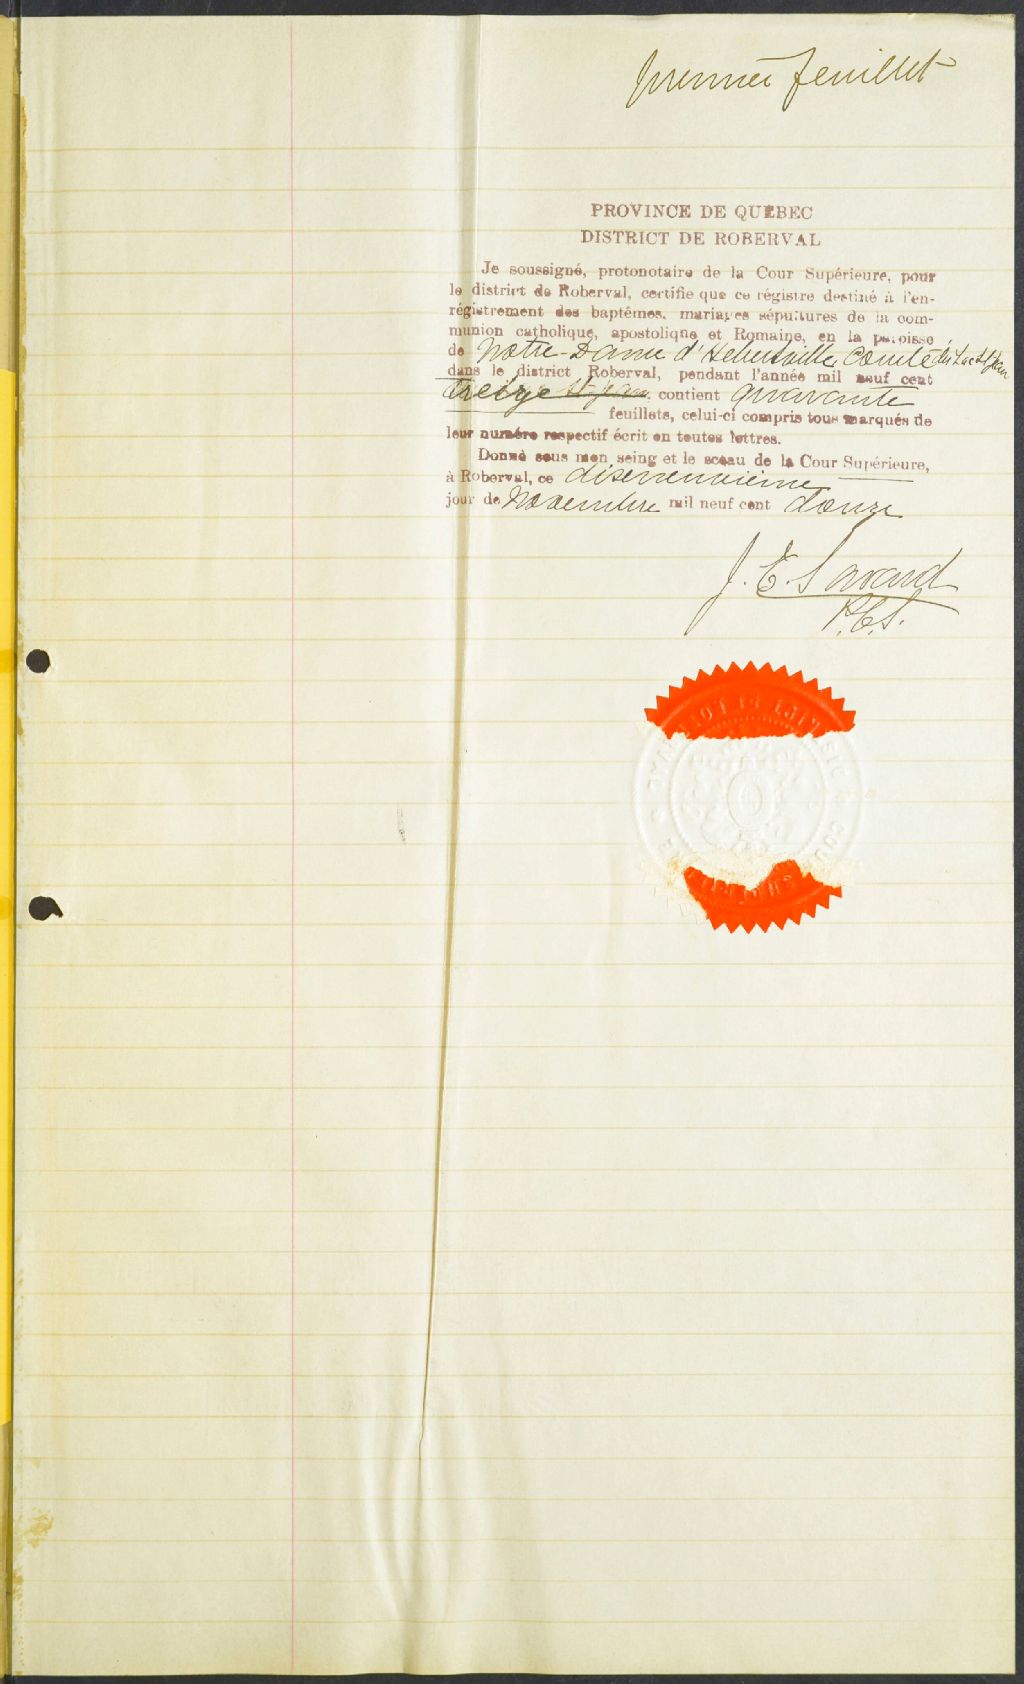 premier feuillet
PROVINCE DE QUÉBEC
DISTRICT DE ROBERVAL
Je soussigné, protonotaire de la Cour Supérieure, pour
le district de Roberval, certifie que ce régistre destiné à l'en-
régistrement des baptêmes, mariages sépultures de la com-
munion catholique, apostolique et Romaine, en la paroisse
de Notre-Dame d'Hébertville, Comté du Lac St Jean
dans le district Roberval, pendant l'année mil neuf cent
treize St-Jean, contient quarante
feuillets, celui-ci compris tous marqués de
leur numéro respectif écrit en toutes lettres.
Donné sous mon seing et le sceau de la Cour Supérieure,
à Roberval, ce dixneuvième
jour de Novembre mil neuf cent douze
J. E. Savard
P.C.S.